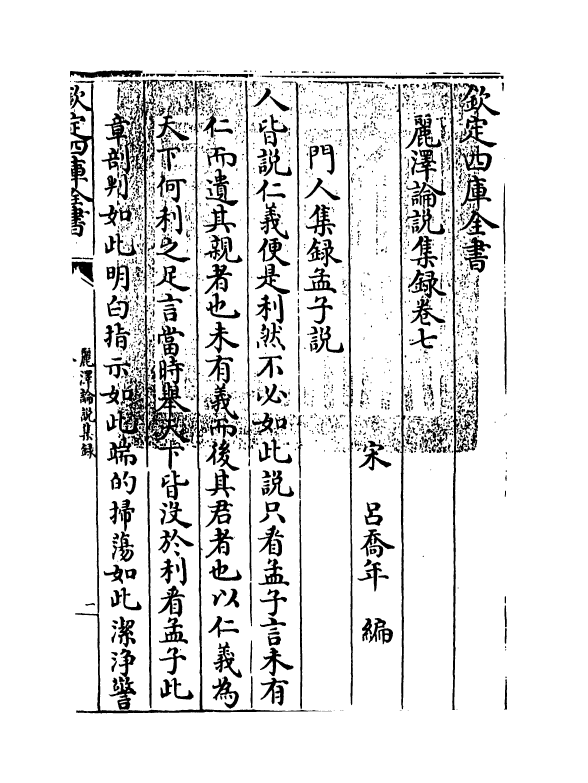 欽定四庫全書
麗澤論說集録卷七
宋 呂喬年 編
門人集録孟子說
人皆說仁義便是利然不必如此說只看孟子言未有
仁而遺其親者也未有義而後其君者也以仁義為
天下何利之足言當時舉天下皆没於利看孟子此
章剖判如此明白指示如此端的掃蕩如此潔淨警
欽定四庫全書
麗澤論說集録
一